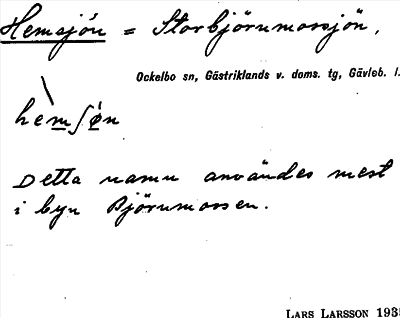 Hemsjön = Storbjörnmorssjön,
Ockelbo sn, Gästriklands v. doms. tg, Gävleb. l.
hèmʃǿn
Detta namn användes mest
i byn Björnmossen.
LARS LARSSON 193